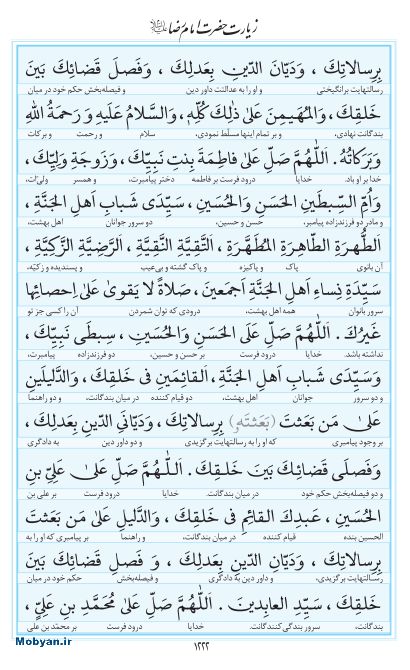 زیارت حضرت امام رضا علیه‌السلام
بِرِسالاتِكَ ، وَدَيّانِ الدّينِ بِعَدلِكَ ، وَفَصلِ قَضائِكَ بَينَ
رسالتهایت برانگیختی و او را به عدالتت داور دین و فیصله‌بخش حکم خود در میان
خَلقِكَ ، وَالمُهَيمِنِ عَلىٰ ذٰلِكَ كُلِّهِ ، وَالسَّلامُ عَلَيهِ وَ رَحمَةُ اللهِ
بندگانت نهادی، و بر تمام اینها مسلّط نمودی، سلام و رحمت و برکات
وَبَرَكاتُهُ . اَللّٰهُمَّ صَلِّ عَلىٰ فاطِمَةَ بِنتِ نَبِيِّكَ ، وَزَوجَةِ وَلِيِّكَ ،
خدا بر او باد. خدایا درود فرست بر فاطمه دختر پیامبرت، و همسر ولیّ‌ات
وَاُمِّ السِّبطَينِ الحَسَنِ وَالحُسَينِ ، سَيِّدَي شَبابِ اَهلِ الجَنَّةِ ،
و مادر دو فرزندزاده پیامبر، حسن و حسین، دو سرور جوانان اهل بهشت،
الطُّهرَةِ الطّاهِرَةِ المُطَهَّرَةِ ، التَّقِيَّةِ النَّقِيَّةِ ، الرَّضِيَّةِ الزَّكِيَّةِ ،
آن بانوی پاک و پاکیزه و پاک گشته و بی‌عیب و پسندیده و زکیّه،
سَيِّدَةِ نِساءِ اَهلِ الجَنَّةِ اَجمَعينَ ، صَلاةً لا يَقوىٰ عَلىٰ اِحصائِها
سرور بانوان همه اهل بهشت، درودی که توان شمردن آن را کسی جز تو
غَيرُكَ . اَللّٰهُمَّ صَلِّ عَلَى الحَسَنِ وَالحُسَينِ ، سِبطَي نَبِيِّكَ ،
نداشته باشد. خدایا درود فرست بر حسن و حسین، دو فرزندزاده پیامبرت،
وَسَيِّدَي شَبابِ اَهلِ الجَنَّةِ ، القائِمَينِ في خَلقِكَ ، وَالدَّليلَينِ
و دو سرور جوانان اهل بهشت، دو قیام کننده در میان بندگانت، و دو راهنما
عَلىٰ مَن بَعَثتَ (بَعَثتَهُ) بِرِسالاتِكَ ، وَدَيّانَيِ الدّينِ بِعَدلِكَ ،
بر وجود پیامبری که او را به رسالتهایت برگزیدی و دو داور دین به دادگری
وَفَصلَي قَضائِكَ بَينَ خَلقِكَ . اَللّٰهُمَّ صَلِّ عَلىٰ عَلِيِّ بنِ
و دو فیصله‌بخش حکم خود در میان بندگانت. خدایا درود فرست بر علی بن
الحُسَينِ ، عَبدِكَ القائِمِ في خَلقِكَ ، وَالدَّليلِ عَلىٰ مَن بَعَثتَ
الحسین بنده قیام کننده در میان بندگانت، و راهنما بر پیامبری که او را به
بِرِسالاتِكَ ، وَدَيّانِ الدّينِ بِعَدلِكَ ، وَ فَصلِ قَضائِكَ بَينَ
رسالتهایت برگزیدی، و داور دین به دادگری و فیصله‌بخش حکم خود در میان
خَلقِكَ ، سَيِّدِ العابِدينَ . اَللّٰهُمَّ صَلِّ عَلىٰ مُحَمَّدِ بنِ عَلِيٍّ ،
بندگانت، سرور بندگی کنندگانت. خدایا درود فرست بر محمّد بن علی
۱۲۲۲
Mobyan.ir